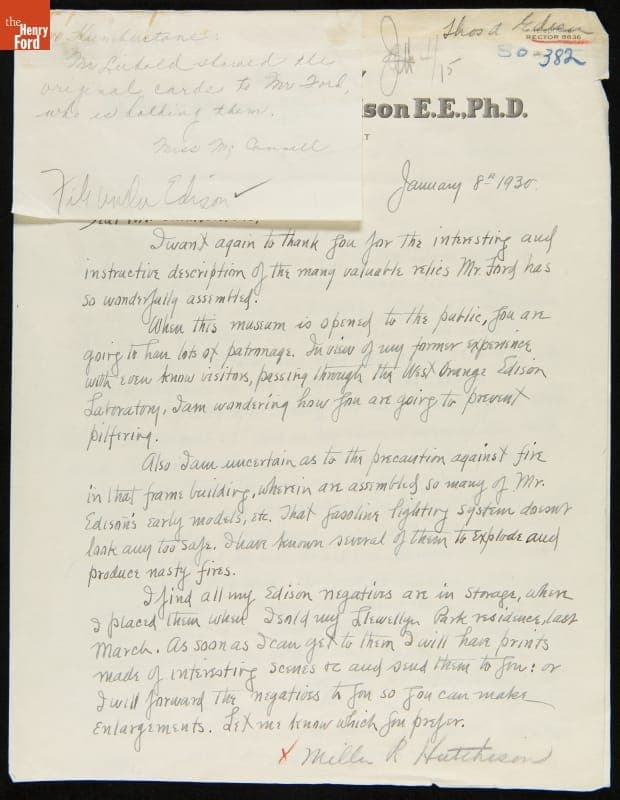 the
Henry
Ford
Mr Liebold showed the
original cards to Mr Ford,
who is holding them.
Miss McConnell
File under Edison ✓
Thos A Edison
RECTOR 8636
30-382
son E.E., Ph.D.
January 8th 1930.
I want again to thank you for the interesting and
instructive description of the many valuable relics Mr. Ford has
so wonderfully assembled.
When this museum is opened to the public, you are
going to have lots of patronage. In view of my former experience
with even know visitors, passing through the West Orange Edison
Laboratory, I am wondering how you are going to prevent
pilfering.
Also I am uncertain as to the precaution against fire
in that frame building, wherein are assembled so many of Mr.
Edison's early models, etc. That gasoline lighting system doesn't
look any too safe. I have known several of them to explode and
produce nasty fires.
I find all my Edison negatives are in storage, where
I placed them when I sold my Llewellyn Park residence, last
March. As soon as I can get to them I will have prints
made of interesting scenes &c and send them to you: or
I will forward the negatives to you so you can make
enlargements. Let me know which you prefer.
x Miller R Hutchison